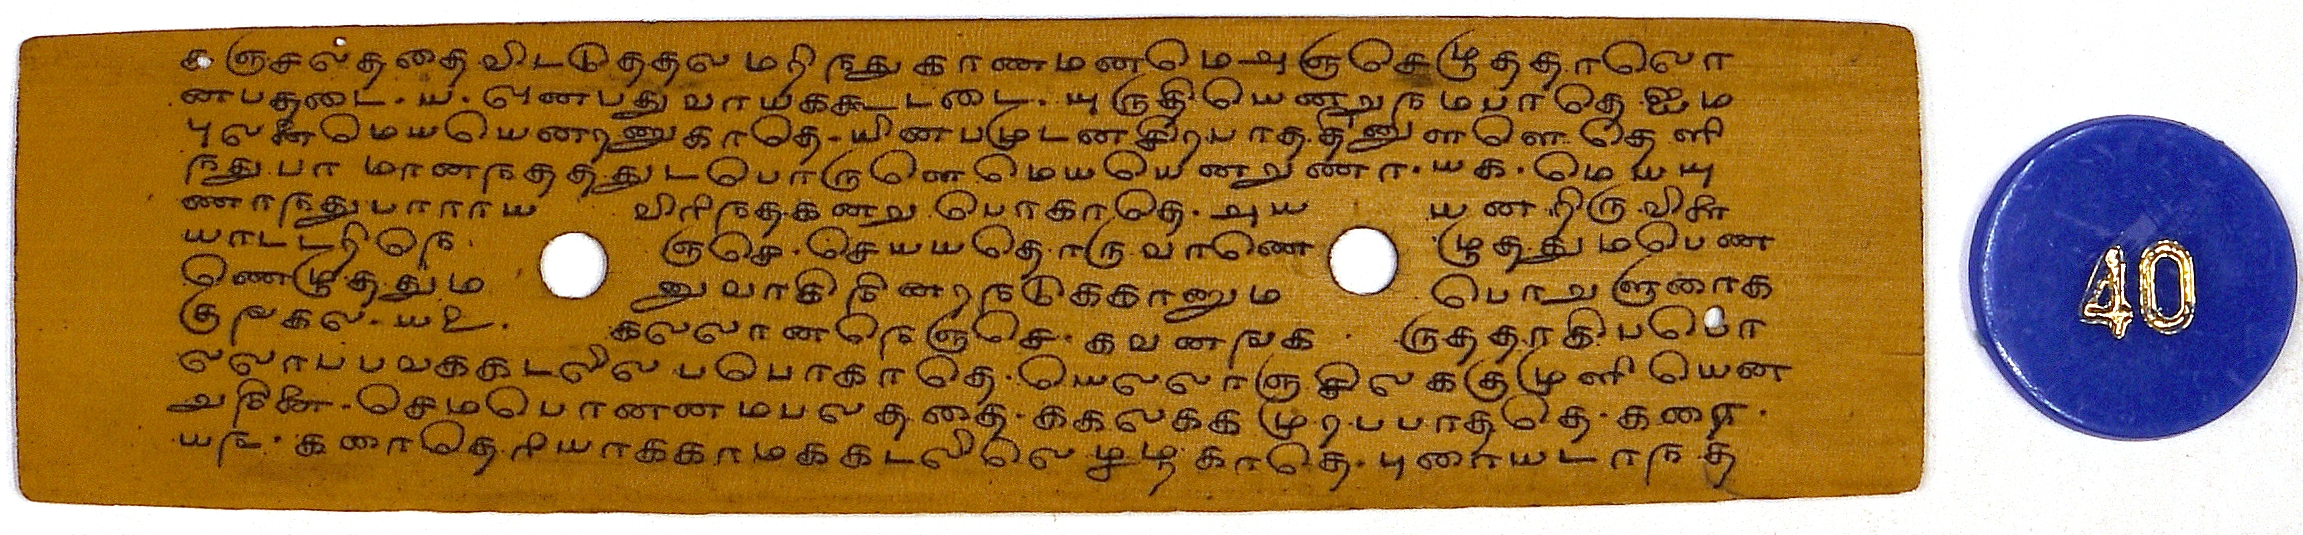 க ஞசலதததை விடடுததல மரிநது காணமனமெ அஞசெழுததாலொ
னபதுடை. ய. ஒனபது வாயககூடடை. யுருதியெனறு நமபாதெ ஐம
புலனை மெயயெனரணுகாதெ. யினபமுடனசிரயாத தினுளளெ தெளி
நது பா மானநதததுடபொருளெ மெயயெனறுணா. யக. மெயயு
ணாநது பாராய விரிநத கனவு பொகாதெ. அய யன றிருவினை
யாடடறிநெ ஞசெ. செயயதொருவாணெ ழுததுமபெண
ணெழுததும னுவாகிநினரநடுககாணும பொறுளுரைக
குஙகல. யஉ. கலலானநெஞசெ. கவனஙக ருததாகிபபொ
லலாபபவககடலிலபபொகாதெ. யெலலாஞசிலககுமுளியென
றுநினை. செமபொனனமபலததை. ககலகக முரபபாததெ. கரை.
யந. கரைதெரியாககாமககடலிலெ ழுழகாதெ. புரையடாநத
40